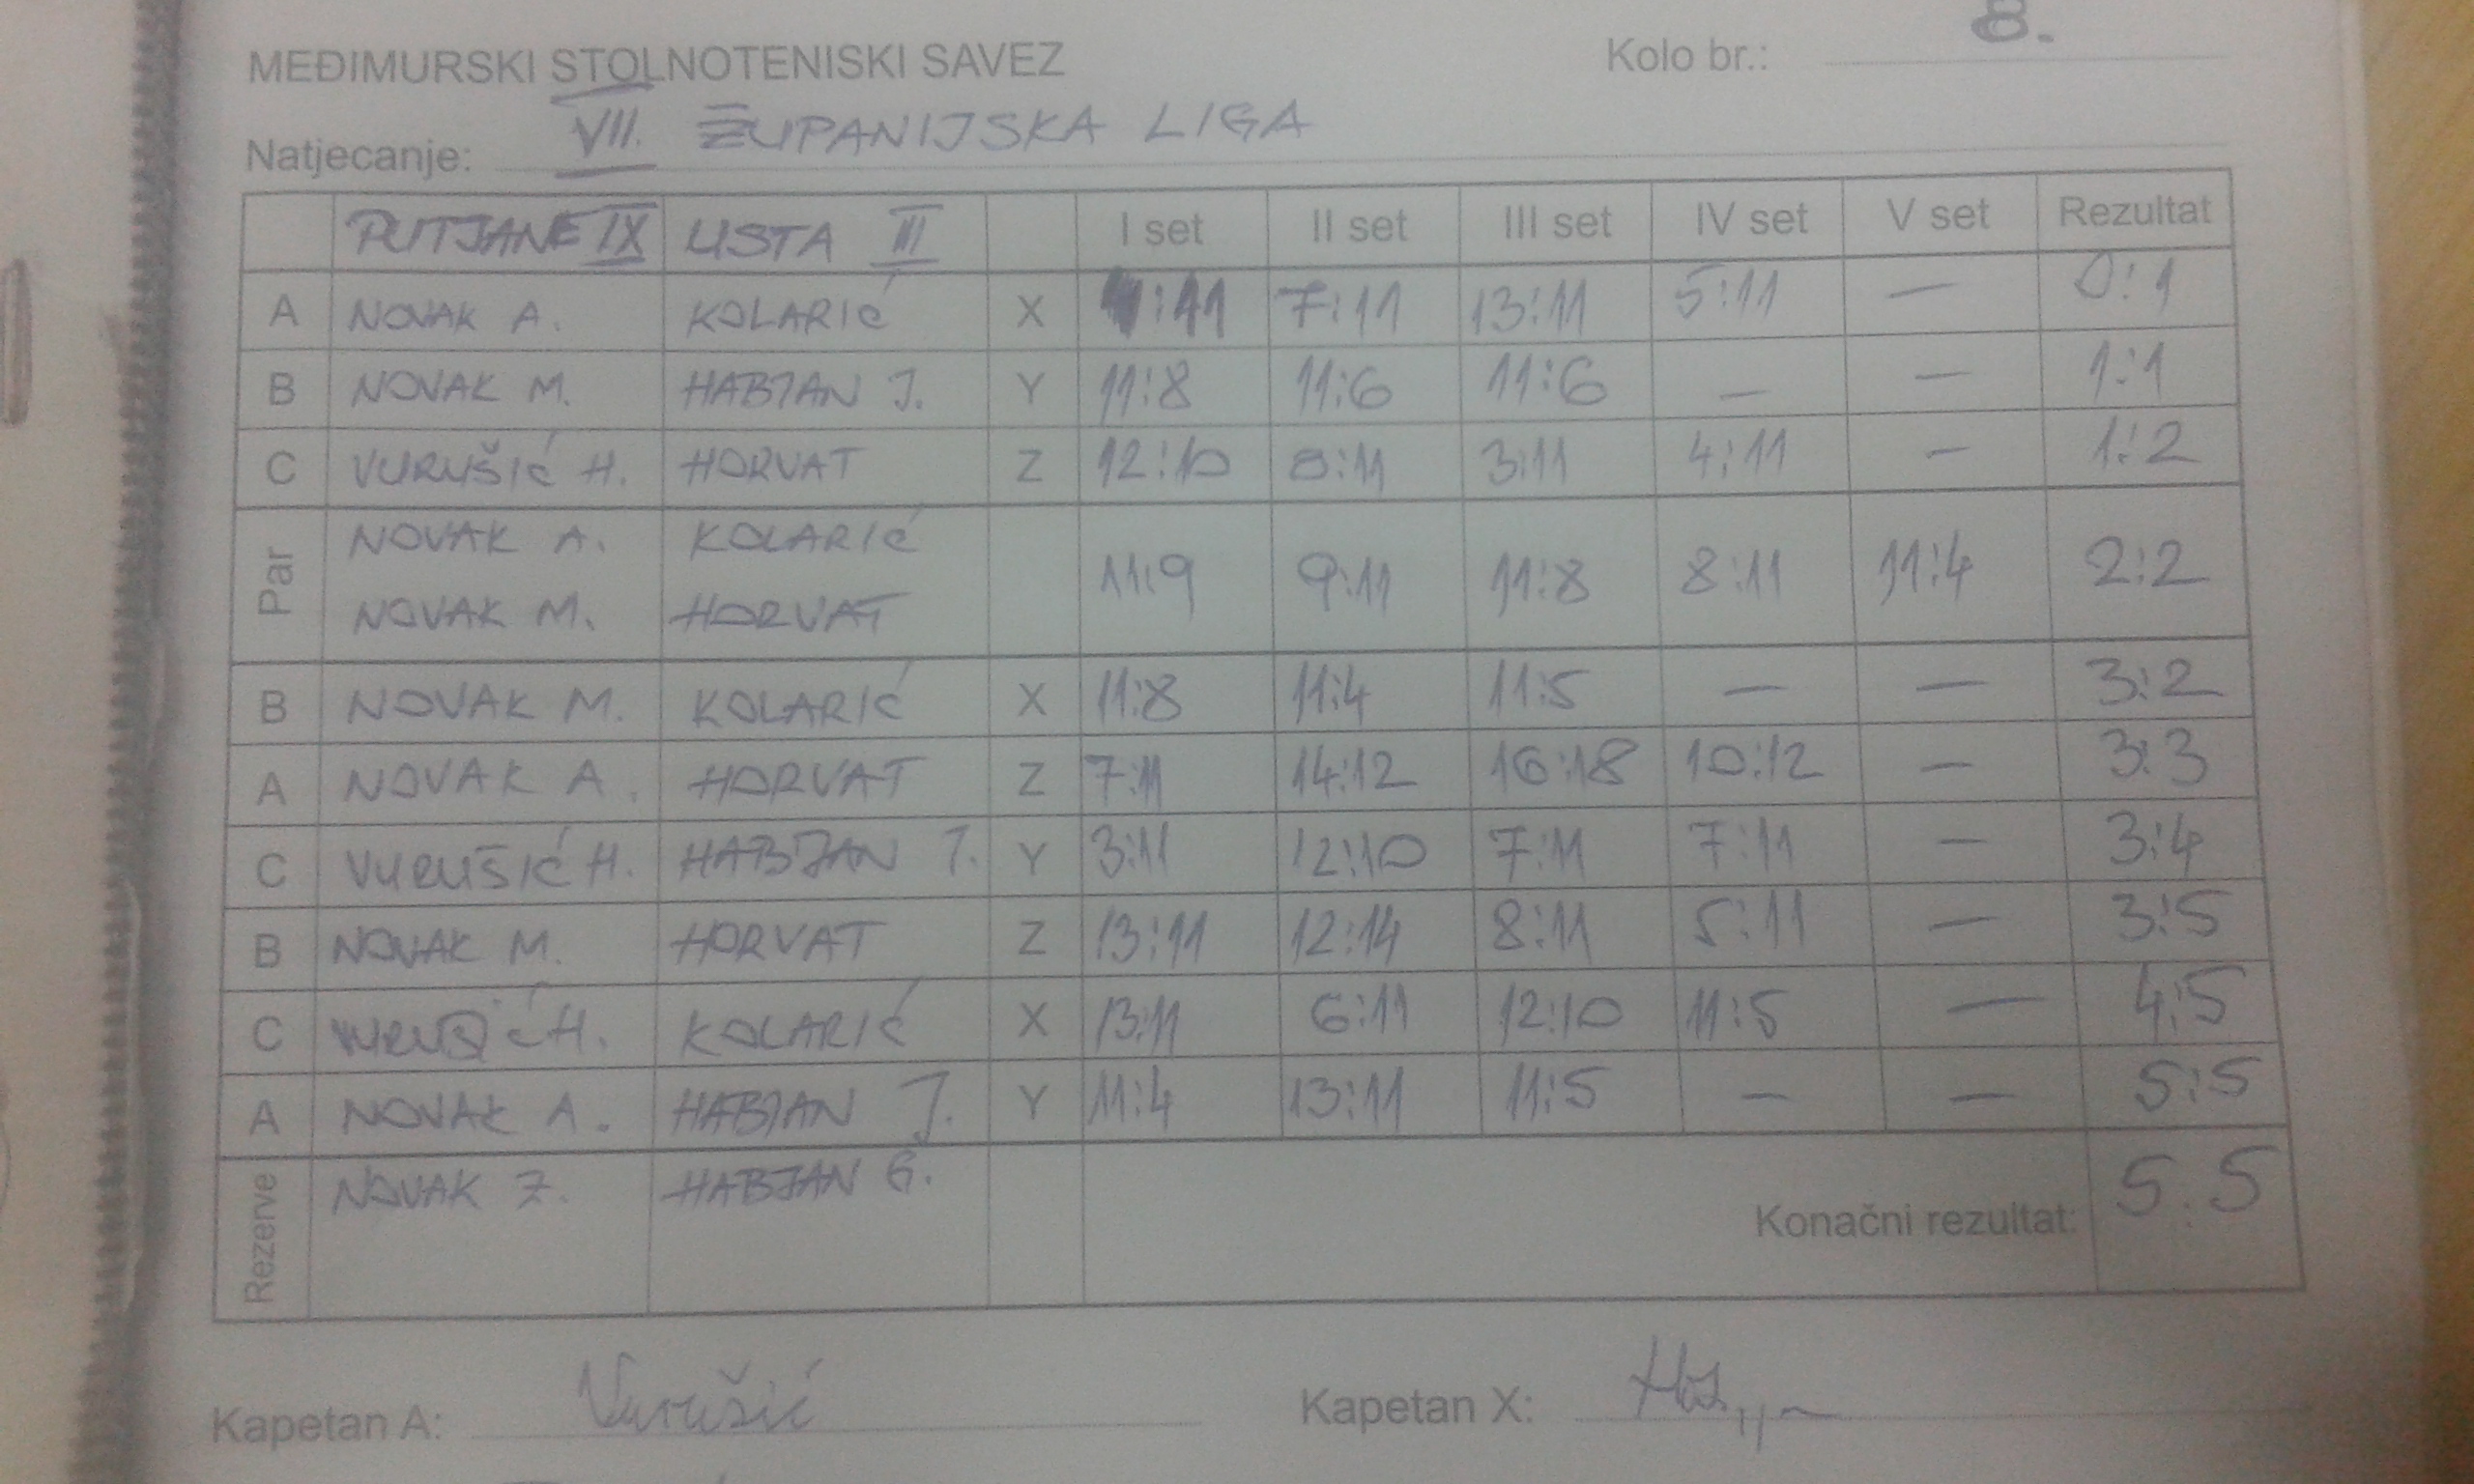 MEĐIMURSKI STOLNOTENISKI SAVEZ Kolo br.: 8.
Natjecanje: VII. ŽUPANIJSKA LIGA
PUTJANE IX LISTA III I set II set III set IV set V set Rezultat
A NOVAK A. KOLARIĆ X :11 7:11 13:11 5:11 — 0:1
B NOVAK M. HABJAN J. Y 11:8 11:6 11:6 — — 1:1
C VURUŠIĆ H. HORVAT Z 12:10 8:11 3:11 4:11 — 1:2
Par NOVAK A. KOLARIĆ
NOVAK M. HORVAT 11:9 9:11 11:8 8:11 11:4 2:2
B NOVAK M. KOLARIĆ X 11:8 11:4 11:5 — — 3:2
A NOVAK A. HORVAT Z 7:11 14:12 16:18 10:12 — 3:3
C VURUŠIĆ H. HABJAN J. Y 3:11 12:10 7:11 7:11 — 3:4
B NOVAK M. HORVAT Z 13:11 12:14 8:11 5:11 — 3:5
C H. KOLARIĆ X 13:11 6:11 12:10 11:5 — 4:5
A NOVAK A. HABJAN J. Y 11:4 13:11 11:5 — — 5:5
Rezerve NOVAK Z. HABJAN G. Konačni rezultat: 5:5
Kapetan A: Vurušić Kapetan X: